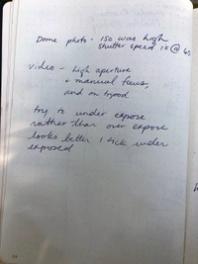 Dome photo - ISO was high
shutter speed 1x @ 60
video - high aperture
+ manual focus,
and on tripod
try to under expose
rather than over expose
looks better 1 tick under
exposed